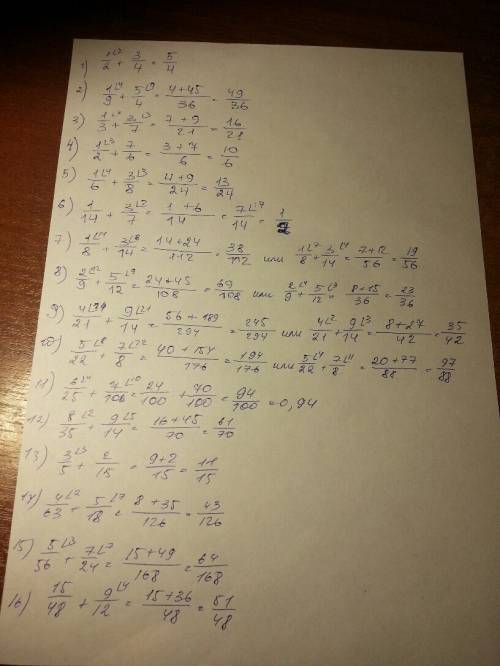 1) 1⌊2/2 + 3/4 = 5/4
2) 1⌊4/9 + 5⌊9/4 = 4+45/36 = 49/36
3) 1⌊7/3 + 3⌊3/7 = 7+9/21 = 16/21
4) 1⌊3/2 + 7/6 = 3+7/6 = 10/6
5) 1⌊4/6 + 3⌊3/8 = 4+9/24 = 13/24
6) 1/14 + 3⌊2/7 = 1+6/14 = 7⌊7/14 = 1/2
7) 1⌊14/8 + 3⌊8/14 = 14+24/112 = 38/112 или 1⌊7/8 + 3⌊4/14 = 7+12/56 = 19/56
8) 2⌊12/9 + 5⌊9/12 = 24+45/108 = 69/108 или 2⌊4/9 + 5⌊3/12 = 8+15/36 = 23/36
9) 4⌊14/21 + 9⌊21/14 = 56+189/294 = 245/294 или 4⌊2/21 + 9⌊3/14 = 8+27/42 = 35/42
10) 5⌊8/22 + 7⌊22/8 = 40+154/176 = 194/176 или 5⌊4/22 + 7⌊11/8 = 20+77/88 = 97/88
11) 6⌊4/25 + 7⌊10/10 = 24/100 + 70/100 = 94/100 = 0,94
12) 8⌊2/35 + 9⌊5/14 = 16+45/70 = 61/70
13) 3⌊3/5 + 2/15 = 9+2/15 = 11/15
14) 4⌊2/63 + 5⌊7/18 = 8+35/126 = 43/126
15) 5⌊3/56 + 7⌊7/24 = 15+49/168 = 64/168
16) 15/48 + 9⌊4/12 = 15+36/48 = 51/48